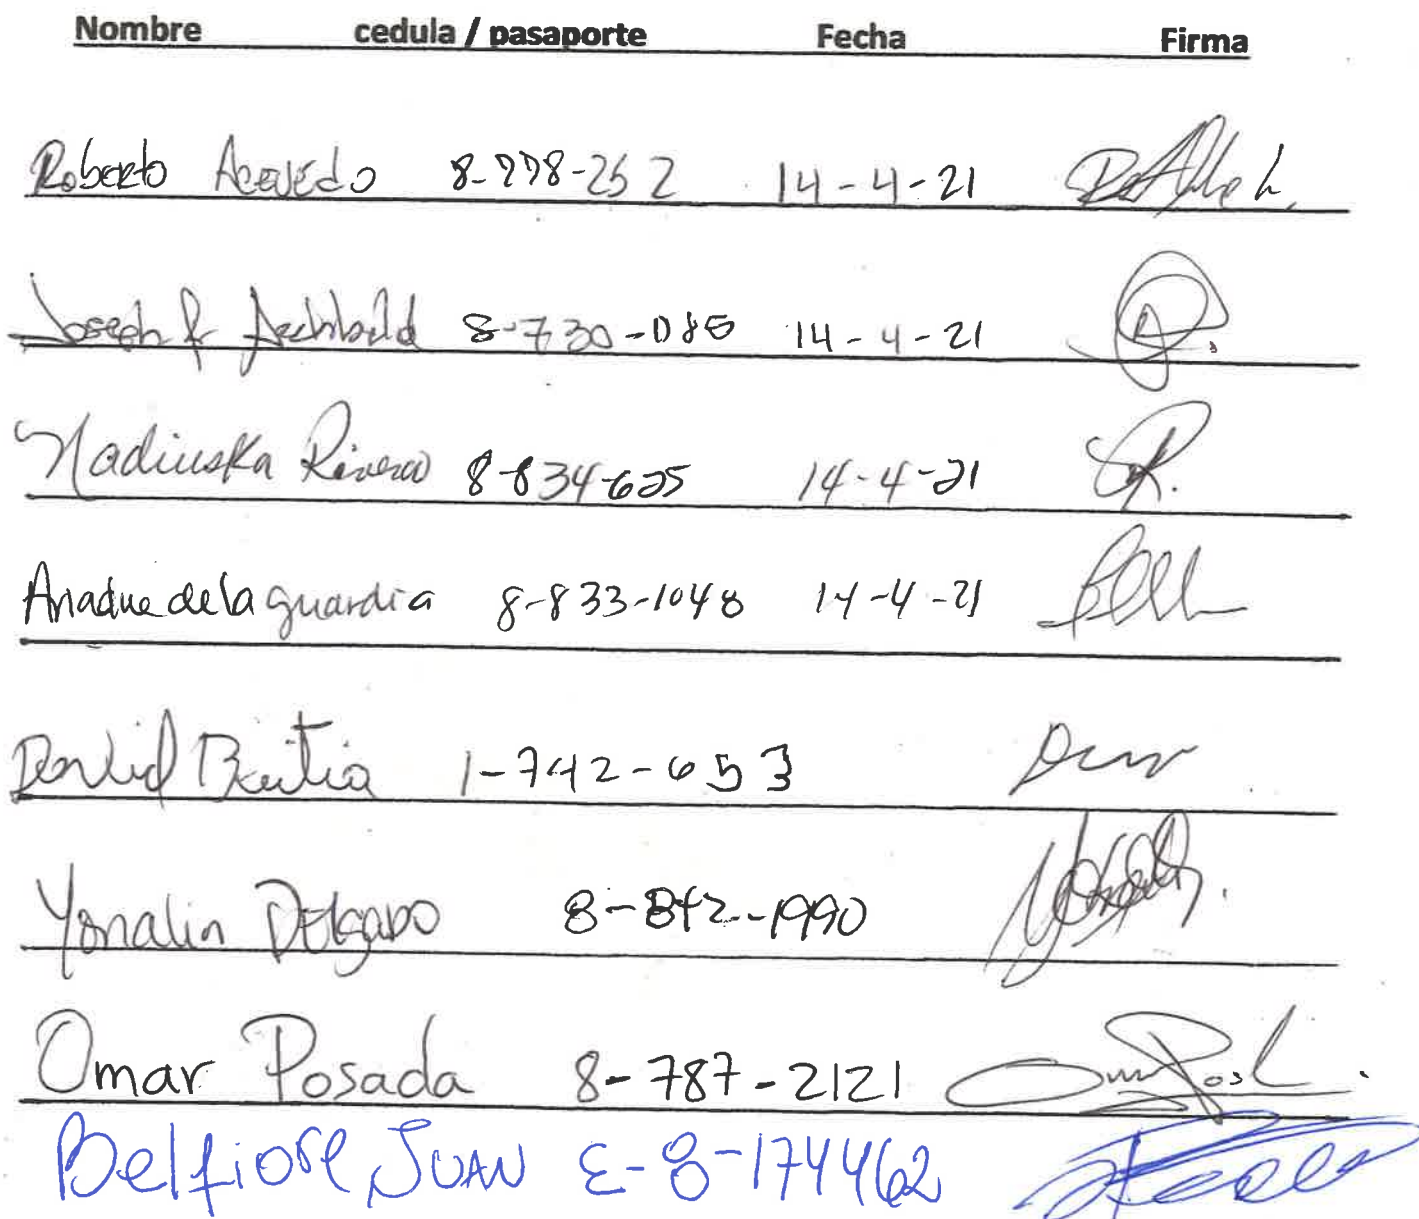 Nombre cedula / pasaporte Fecha Firma
Roberto Acevedo 8-778-252 14-4-21
Joseph Archibald 8-730-085 14-4-21
Nadiuska Rivera 8-834-625 14-4-21
Ariadne de la guardia 8-833-1048 14-4-21
David Beitia 1-742-653
Yonalin Delgado 8-842-1990
Omar Posada 8-787-2121
Belfiore JUAN E-8-174462